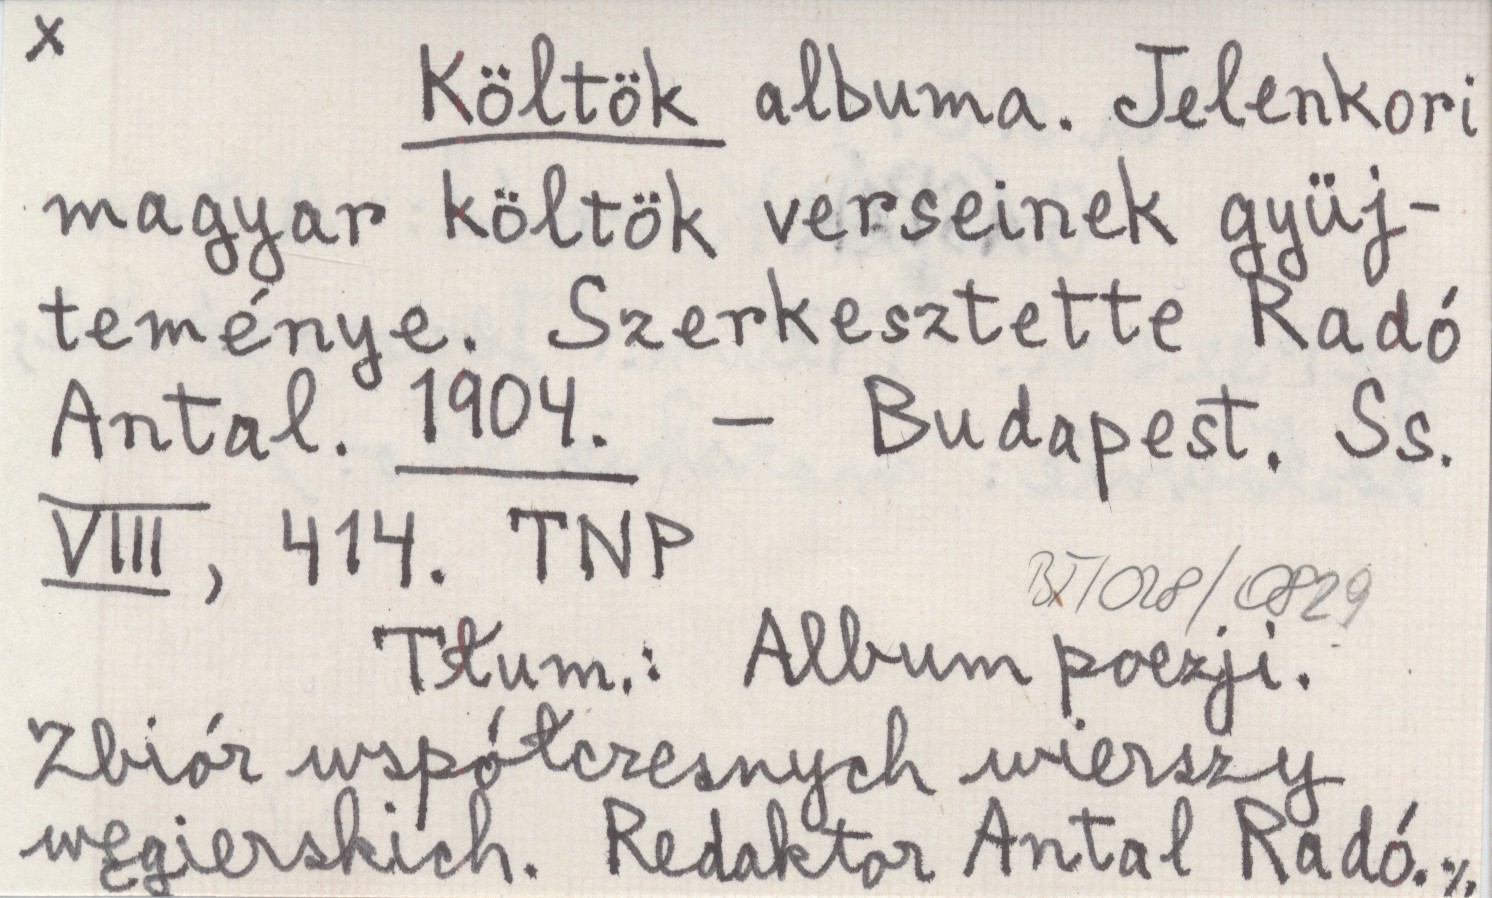 x
Költök albuma. Jelenkori
magyar költök verseinek gyüj-
teménye. Szerkesztette Radó
Antal. 1904. — Budapest. Ss.
VIII, 414. TNP
BJ/028/0829
Tłum.: Album poezji.
Zbiór współczesnych wierszy
węgierskich. Redaktor Antal Radó. %.